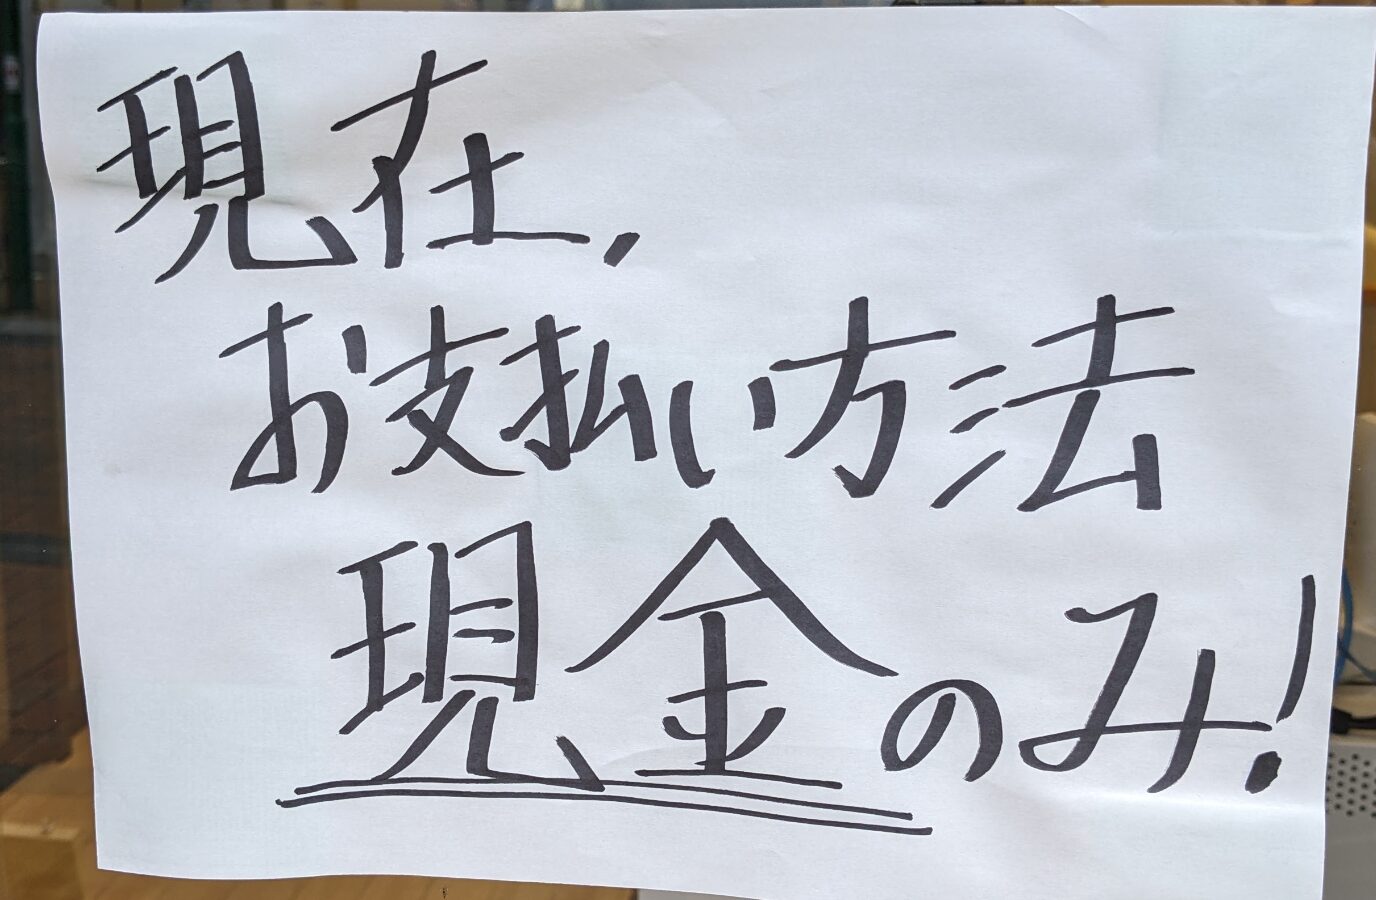 現在、
お支払い方法
現金のみ!